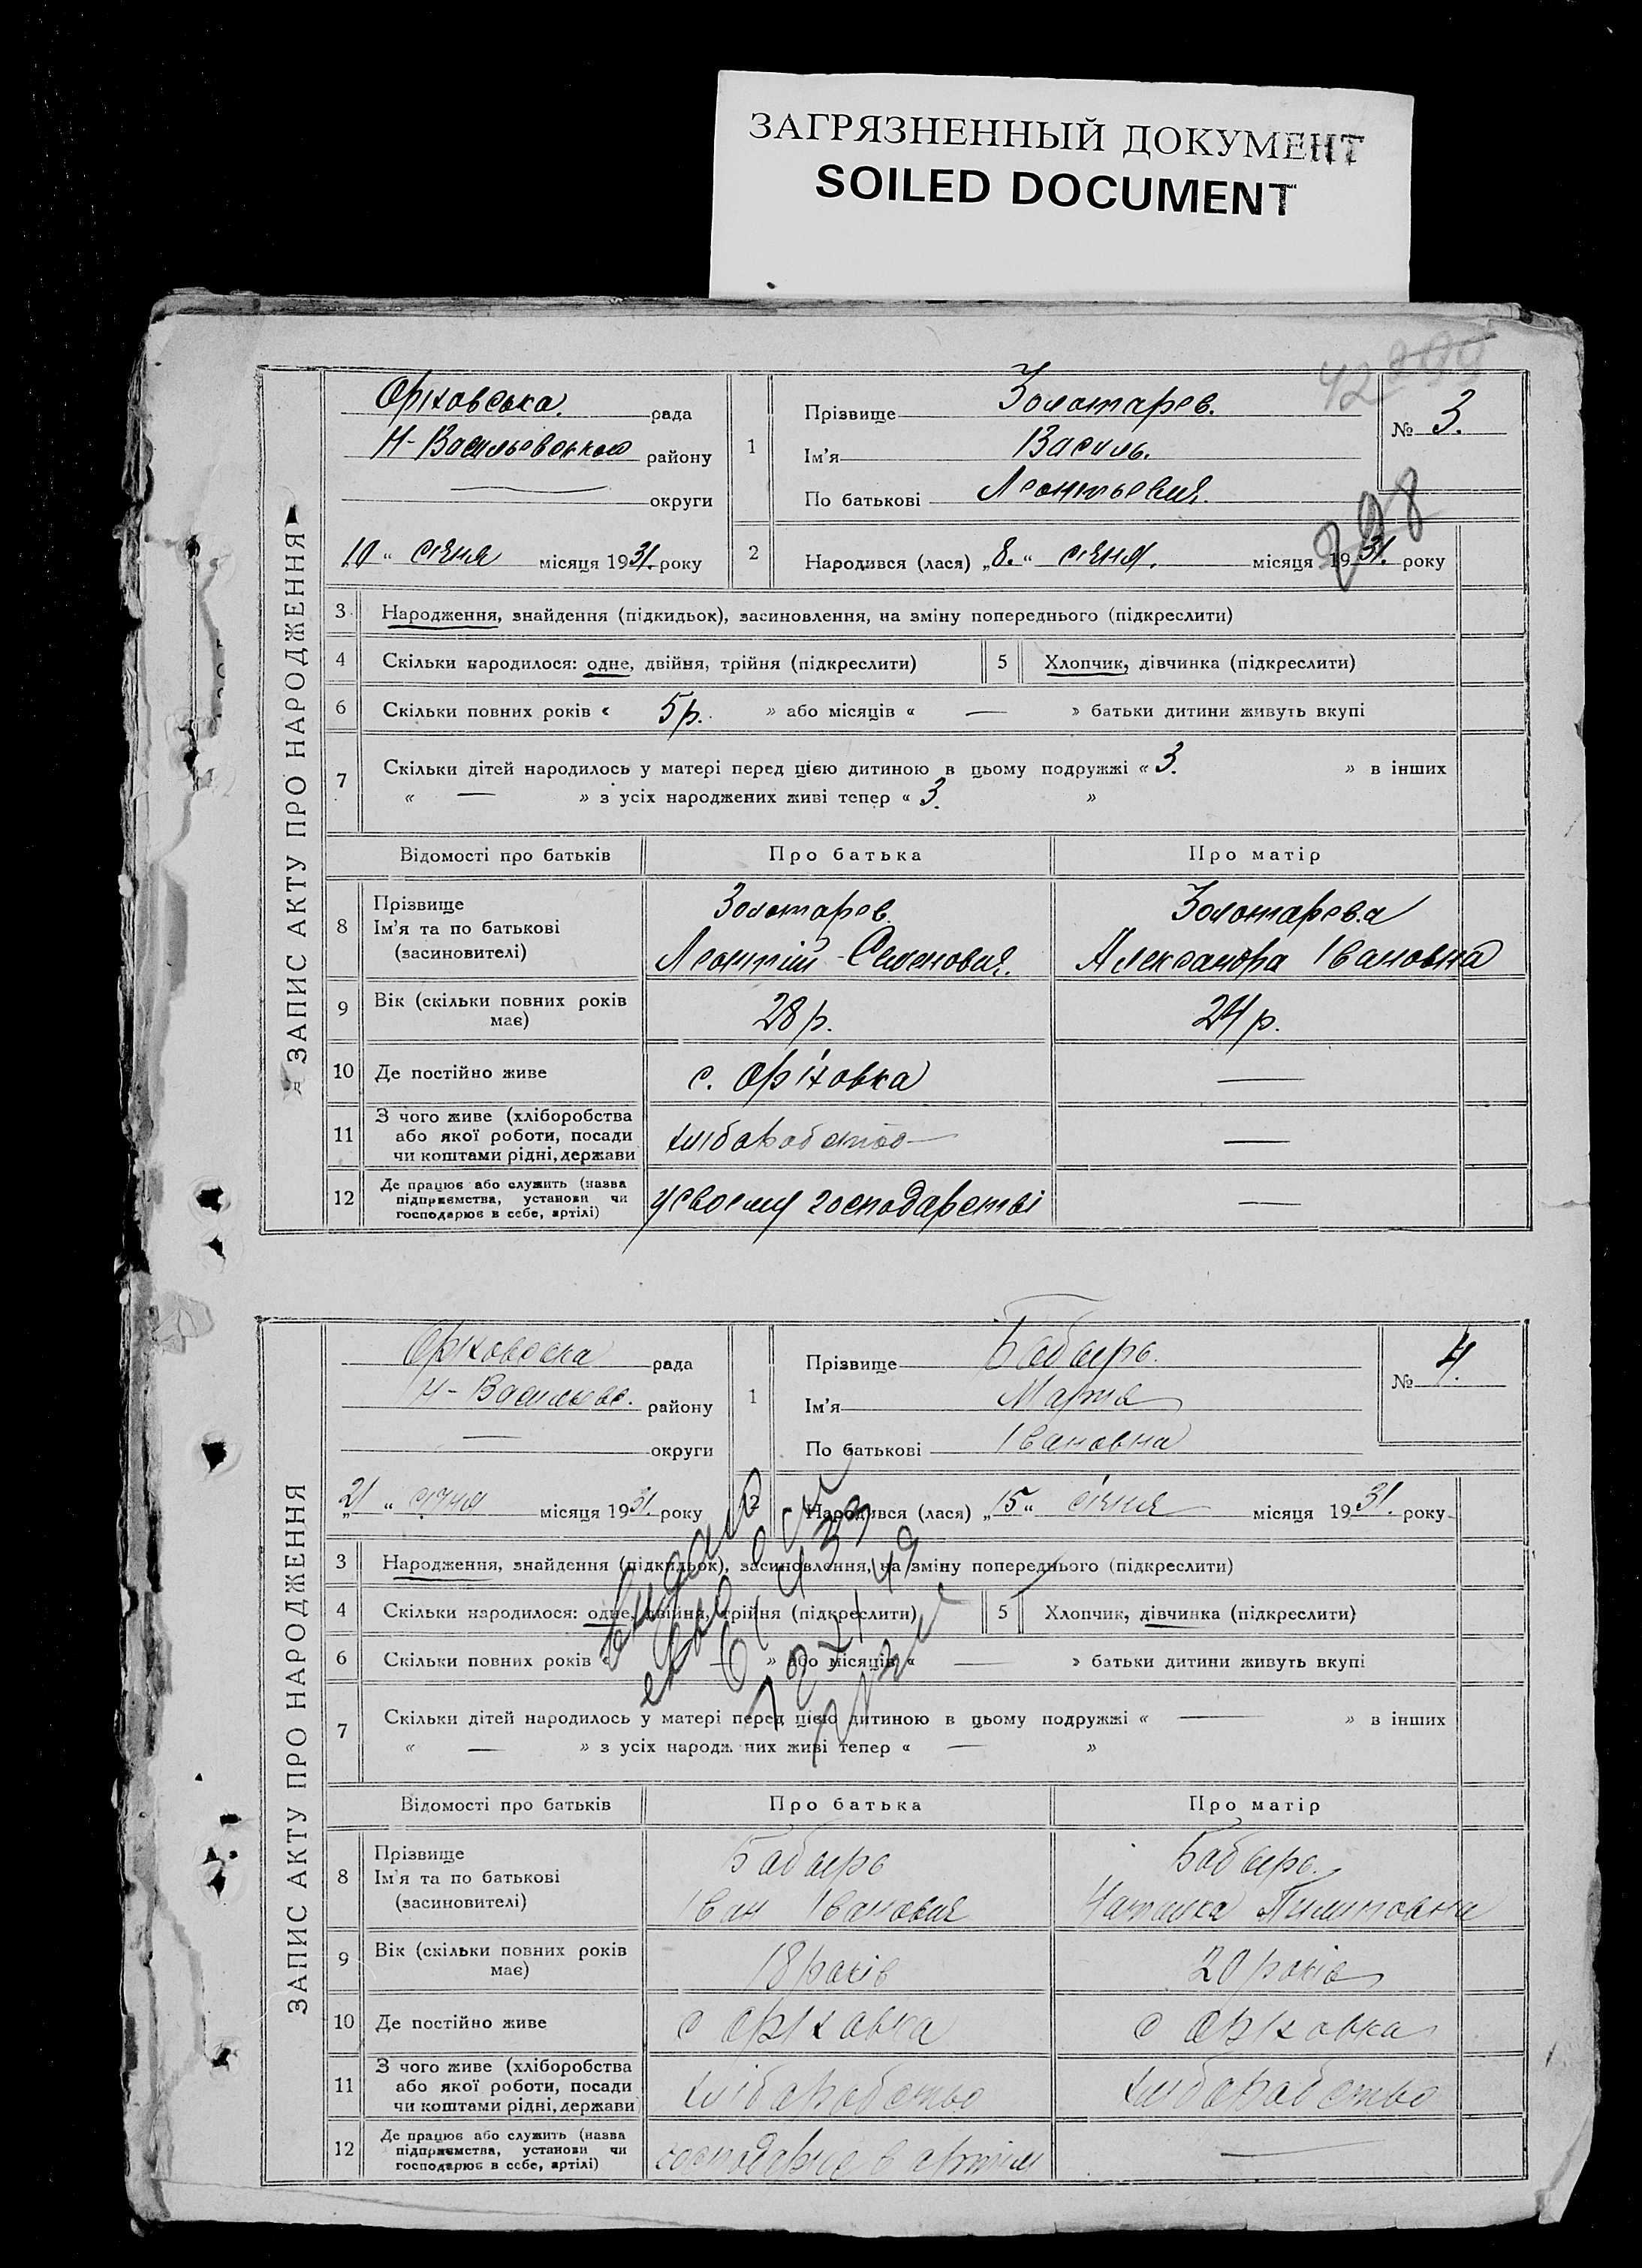 ЗАГРЯЗНЕННЫЙ ДОКУМЕНТ
SOILED DOCUMENT
42
ЗАПИС АКТУ ПРО НАРОДЖЕННЯ
Оріховська рада
Н-Васильевського району
— округи
1
Прізвище Золотарев.
Ім'я Василь.
По батькові Леонтьевич.
№ 3.
298
„10“ січня місяця 1931. року
2 Народився (лася) „8.“ січня. місяця 1931. року
3 Народження, знайдення (підкидьок), засиновлення, на зміну попереднього (підкреслити)
4 Скільки народилося: одне, двійня, трійня (підкреслити)
5 Хлопчик, дівчинка (підкреслити)
6 Скільки повних років « 5 р. » або місяців « — » батьки дитини живуть вкупі
7 Скільки дітей народилось у матері перед цією дитиною в цьому подружжі « 3. » в інших
« — » з усіх народжених живі тепер « 3. »
Відомості про батьків Про батька Про матір
8 Прізвище Ім'я та по батькові (засиновителі)
Золотарев Леонтій Семенович.
Золотарева Александра Івановна
9 Вік (скільки повних років має) 28 р. 24 р.
10 Де постійно живе с. Оріховка —
11 З чого живе (хліборобства або якої роботи, посади чи коштами рідні, держави хліборобство —
12 Де працює або служить (назва підприємства, установи чи господарює в себе, артілі) у своєму господарстві —
ЗАПИС АКТУ ПРО НАРОДЖЕННЯ
Оріховска рада
Н-Васильев. району
— округи
1
Прізвище Бабырь.
Ім'я Мария
По батькові Івановна
№ 4.
„21“ січня місяця 1931. року
2 Народився (лася) „15“ січня місяця 1931. року
3 Народження, знайдення (підкидьок), засиновлення, на зміну попереднього (підкреслити)
4 Скільки народилося: одне, двійня, трійня (підкреслити)
5 Хлопчик, дівчинка (підкреслити)
6 Скільки повних років « — » або місяців « — » батьки дитини живуть вкупі
7 Скільки дітей народилось у матері перед цією дитиною в цьому подружжі « — » в інших
« — » з усіх народж них живі тепер « — »
Відомості про батьків Про батька Про матір
8 Прізвище Ім'я та по батькові (засиновителі)
Бабырь Іван Іванович
Бабырь. Наталка Пилиповна
9 Вік (скільки повних років має) 18 років 20 років
10 Де постійно живе с Оріховка с Оріховка
11 З чого живе (хліборобства або якої роботи, посади чи коштами рідні, держави хліборобство хліборобство
12 Де працює або служить (назва підприємства, установи чи господарює в себе, артілі) господарює в артілі —